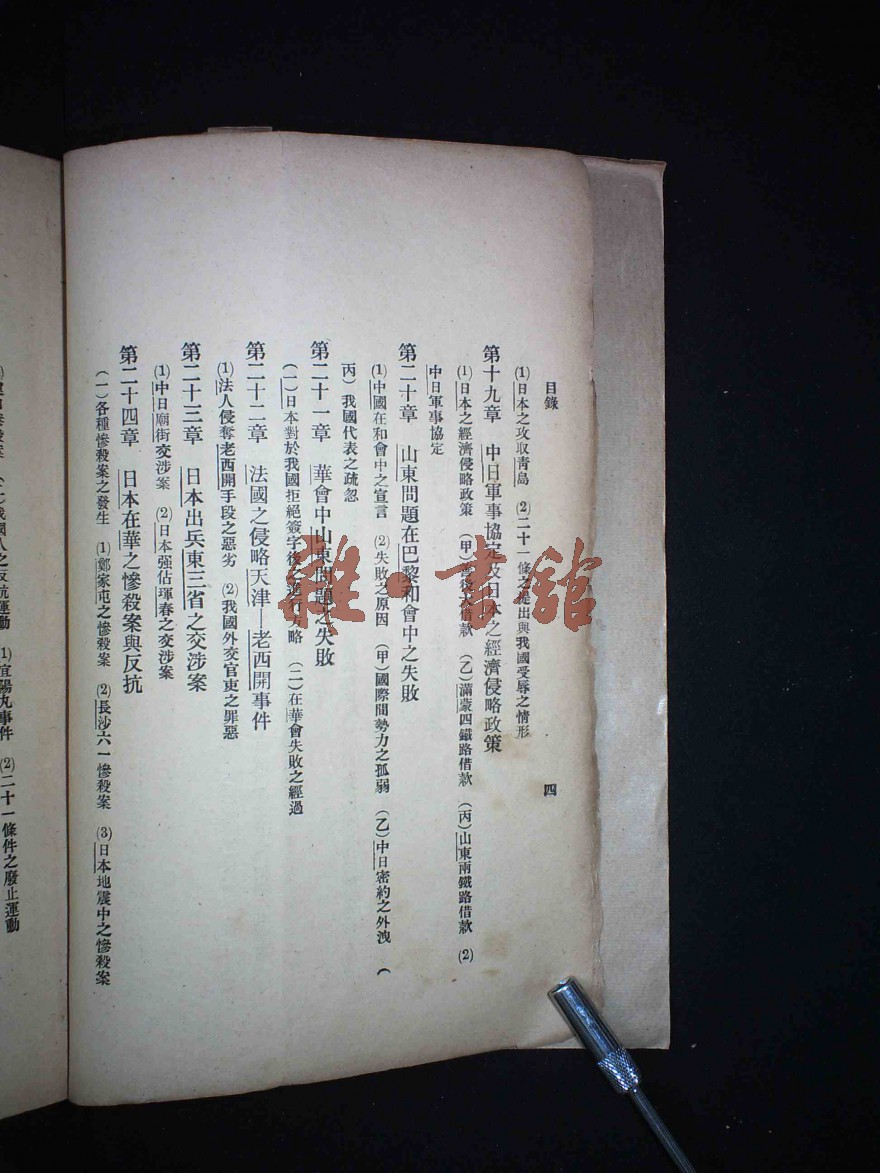 目錄
四
(1)日本之攻取青島 (2)二十一條之提出與我國受辱之情形
第十九章 中日軍事協定及日本之經濟侵略政策
(1)日本之經濟侵略政策 (甲)善後大借款 (乙)滿蒙四鐵路借款 (丙)山東兩鐵路借款 (2)
中日軍事協定
第二十章 山東問題在巴黎和會中之失敗
(1)中國在和會中之宣言 (2)失敗之原因 (甲)國際間勢力之孤弱 (乙)中日密約之外洩 (
丙)我國代表之疏忽
第二十一章 華會中山東問題之失敗
(一)日本對於我國拒絕簽字後之進行方略 (二)在華會失敗之經過
第二十二章 法國之侵略天津—老西開事件
(1)法人侵奪老西開手段之惡劣 (2)我國外交官吏之罪惡
第二十三章 日本出兵東三省之交涉案
(1)中日廟街交涉案 (2)日本強佔琿春之交涉案
第二十四章 日本在華之慘殺案與反抗
(一)各種慘殺案之發生 (1)鄭家屯之慘殺案 (2)長沙六一慘殺案 (3)日本地震中之慘殺案
之反抗運動 (1)宜陽丸事件 (2)二十一條件之廢止運動
雜書館